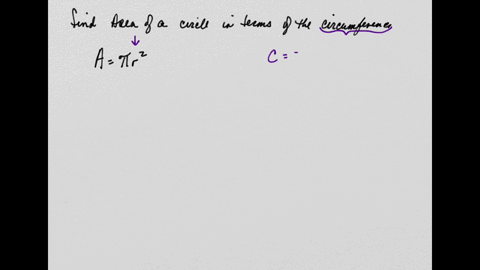 find Area of a circle in terms of the circumference
A = πr² C = -